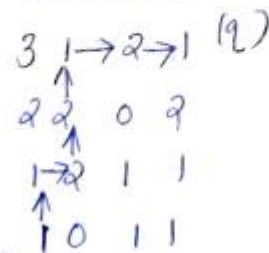 3 1→2→1 (9)
↑
2 2 0 2
↑
1→2 1 1
↑
1 0 1 1